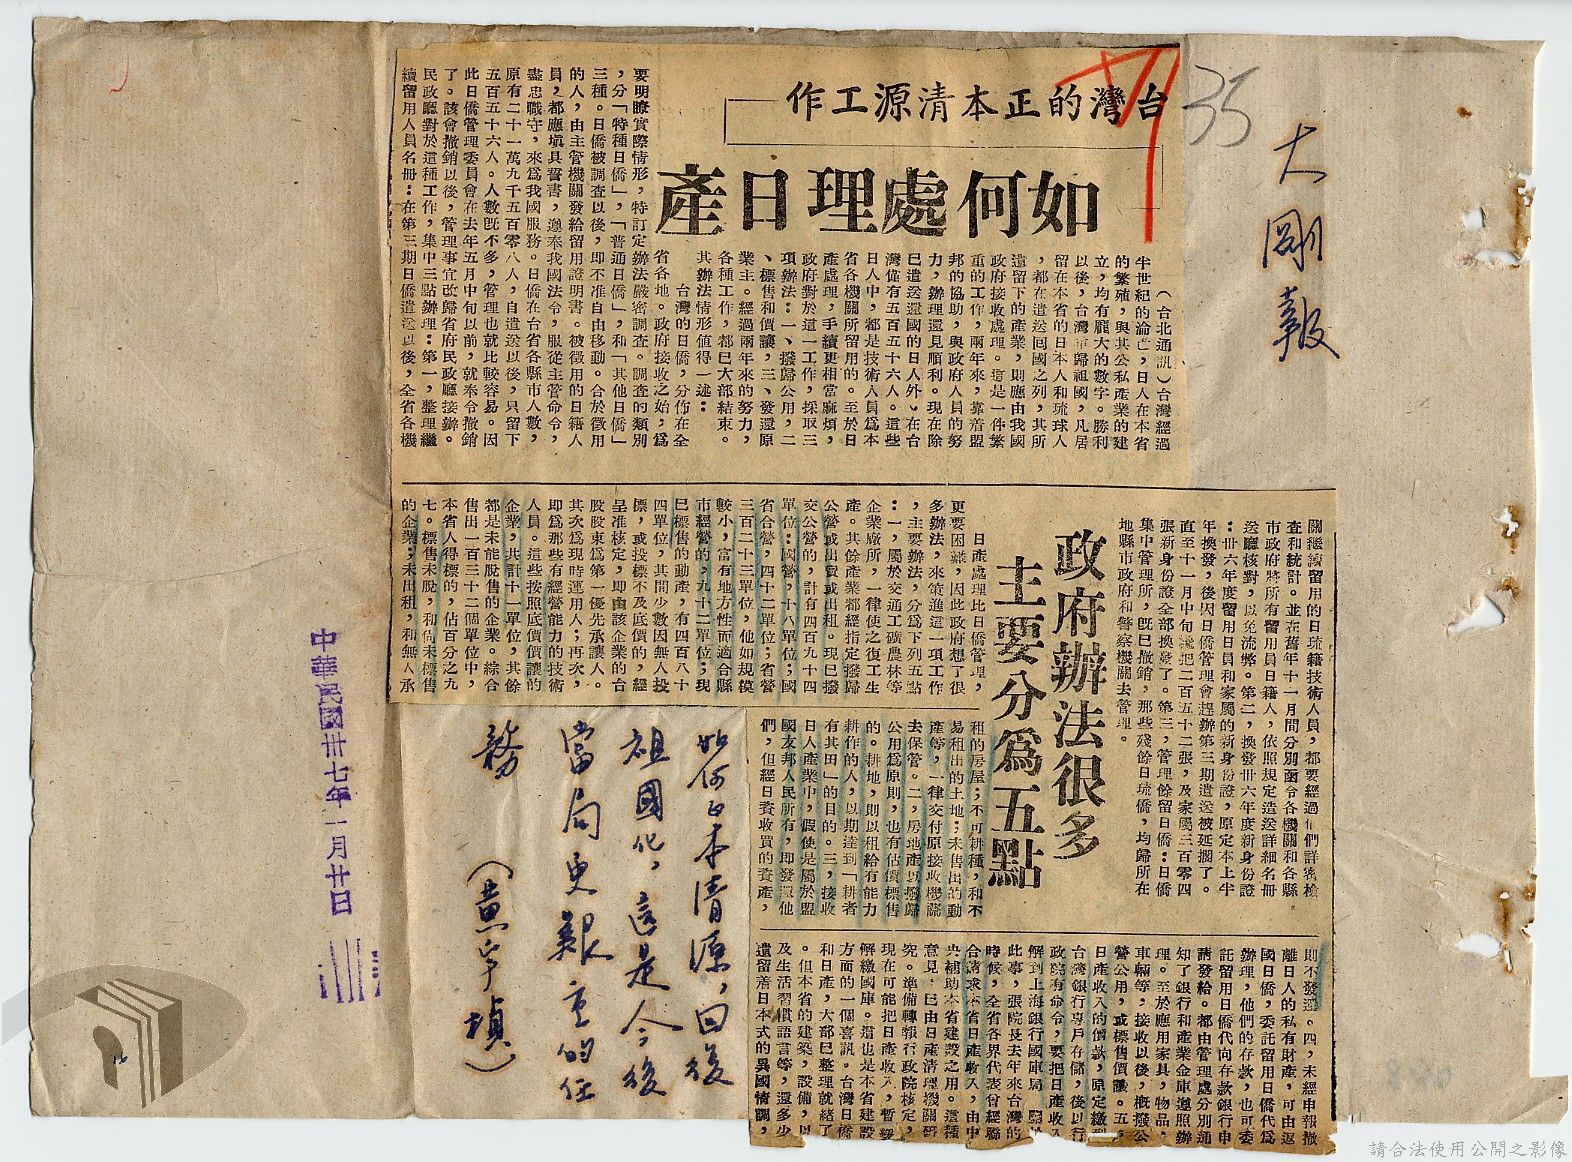 大剛報
35
台灣的正本清源工作
如何處理日產
（台北通訊）台灣經過
半世紀的淪亡，日人在本省
的繁殖，與其公私產業的建
立，均有龐大的數字。勝利
以後，台灣重歸祖國，凡居
留在本省的日本人和琉球人
，都在遣送回國之列，其所
遺留下的產業，則應由我國
政府接收處理。這是一件繁
重的工作，兩年來，靠着盟
邦的協助，與政府人員的努
力，辦理還見順利。現在除
已遣送還國的日人外，在台
灣僅有五百五十六人。這些
日人中，都是技術人員爲本
省各機關所留用的。至於日
產處理，手續更相當麻煩，
政府對於這一工作，採取三
項辦法：一、撥歸公用，二
、標售和價讓，三、發還原
業主。經過兩年來的努力，
各種工作，都已大部結束。
其辦法情形值得一述：
台灣的日僑，分佈在全
省各地。政府接收之始，爲
要明瞭實際情形，特訂定辦法嚴密調查。調查的類別
，分「特種日僑」，「普通日僑」，和「其他日僑」
三種。日僑被調查以後，即不准自由移動。合於徵用
的人，由主管機關發給留用證明書。被徵用的日籍人
員，都應填具誓書，遵奉我國法令，服從主管命令，
盡忠職守，來爲我國服務。日僑在台省各縣市人數，
原有二十一萬九千五百零八人，自遣送以後，只留下
五百五十六人。人數旣不多，管理也就比較容易。因
此日僑管理委員會在去年五月中旬以前，就奉令撤銷
了。該會撤銷以後，管理事宜改歸省府民政廳接辦。
民政廳對於這種工作，集中三點辦理：第一，整理繼
續留用人員名冊：在第三期日僑遣送以後，全省各機
關繼續留用的日琉籍技術人員，都要經過他們詳密檢
查和統計。並在舊年十一月間分別函令各機關和各縣
市政府將所有留用員日籍人，依照規定造送詳細名冊
送廳核對，以免流弊。第二，換發卅六年度新身份證
：卅六年度留用日員和家屬的新身份證，原定本上半
年換發，後因日僑管理會趕辦第三期遣送被延擱了。
直至十一月中旬纔把二百五十二張，及家屬三百零四
張新身份證全部換發了。第三，管理餘留日僑：日僑
集中管理所，旣已撤銷，那些殘餘日琉僑，均歸所在
地縣市政府和警察機關去管理。
政府辦法很多
主要分爲五點
日產處理比日僑管理，
更要困難，因此政府想了很
多辦法，來策進這一項工作
，主要辦法，分爲下列五點
：一，屬於交通工礦農林等
企業廠所，一律使之復工生
產。其餘產業都經指定撥歸
公營或出賣或出租。現已撥
交公營的，計有四百九十四
單位：國營，十八單位；國
省合營，四十二單位；省營
三百二十三單位，他如規模
較小，富有地方性而適合縣
市經營的，九十二單位；現
已標售的動產，有四百八十
四單位，其間少數因無人投
標，或投標不及底價的，經
呈准核定，即由該企業的台
股股東爲第一優先承讓人。
其次爲現時運用人；再次，
即爲那些有經營能力的技術
人員。這些按照底價價讓的
企業，共計十一單位，其餘
都是未能脫售的企業。綜合
售出一百三十二個單位中，
本省人得標的，佔百分之九
七。標售未脫，和尙未標售
的企業；未出租，和無人承
租的房屋；不可耕種，和不
易租出的土地；未售出的動
產等，一律交付原接收機關
去保管。二，房地產以撥歸
公用爲原則，也有估價標售
的。耕地，則以租給有能力
耕作的人，以期達到「耕者
有其田」的目的。三，接收
日人產業中，假使是屬於盟
國友邦人民所有，即發還他
們，但經日資收買的資產，
則不發還。四，未經申報撤
離日人的私有財產，可由返
國日僑，委託留用日僑代爲
辦理，他們的存款，也可委
託留用日僑代向存款銀行申
請發給。都由管理處分別通
知了銀行和產業金庫遵照辦
理。至於應用家具，物品，
車輛等，接收以後，概撥公
營公用，或標售價讓。五，
日產收入的價款，原定繳到
台灣銀行專戶存儲，後以行
政院有命令，要把日產收入
解到上海銀行國庫局 關於
此事，張院長去年來台灣的
時候，全省各界代表曾經聯
合請求本省日產收入，由中
央補助本省建設之用。這種
意見，已由日產清理撥關研
究。準備轉報行政院核定，
現在可能把日產收入，暫緩
解繳國庫。這也是本省建設
方面的一個喜訊。台灣日僑
和日產，大部已整理就緒了
。但本省的建築，設備，以
及生活習慣語言等，還多少
遺留着日本式的異國情調，
如何正本清源，回復
祖國化，這是今後
當局更艱重的任
務 （黃宇楨）
中華民國卅七年一月廿日
請合法使用公開之影像